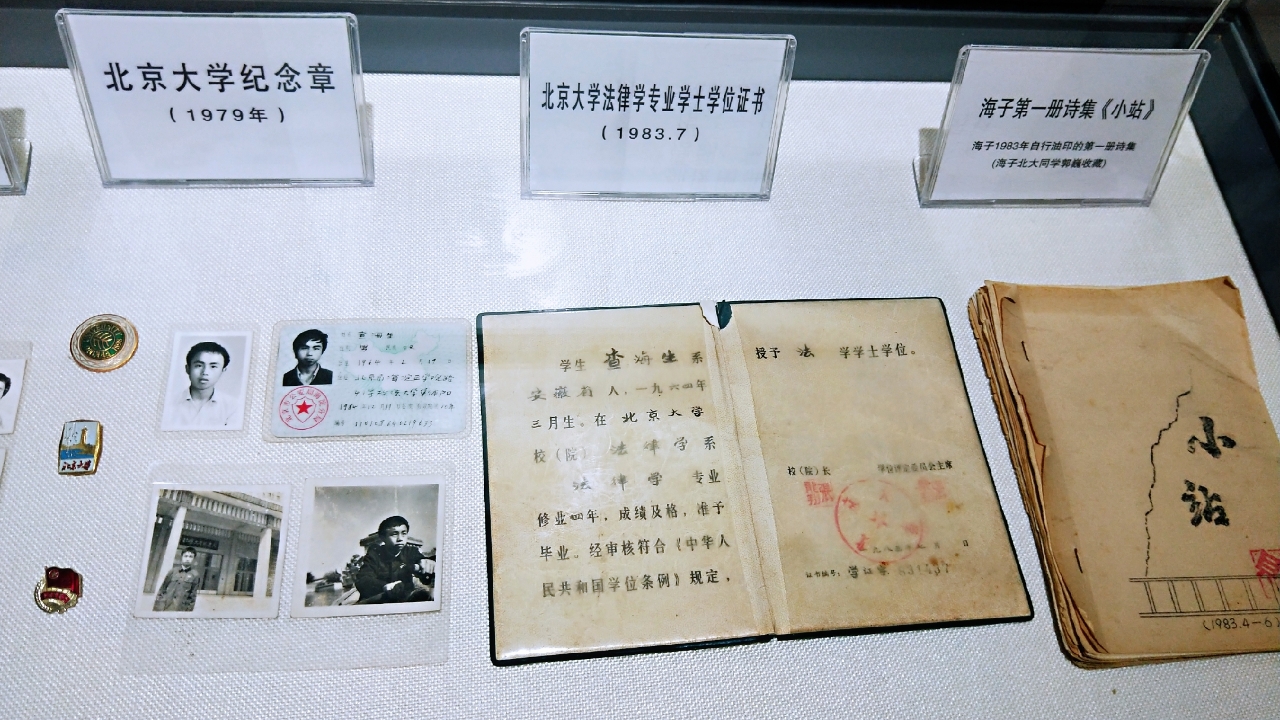 北京大学纪念章
(1979年)
北京大学法律学专业学士学位证书
(1983.7)
海子第一册诗集《小站》
海子1983年自行油印的第一册诗集
(海子北大同学郭巍收藏)
北京大学
查海生
学生 查海生 系
安徽省人，一九六四年
三月生。在 北京大学
校（院） 法律学系
法律学 专业
修业四年，成绩及格，准予
毕业。经审核符合《中华人
民共和国学位条例》规定，
授予 法 学学士学位。
校（院）长 学位评定委员会主席
证书编号：
小站
(1983.4-6)